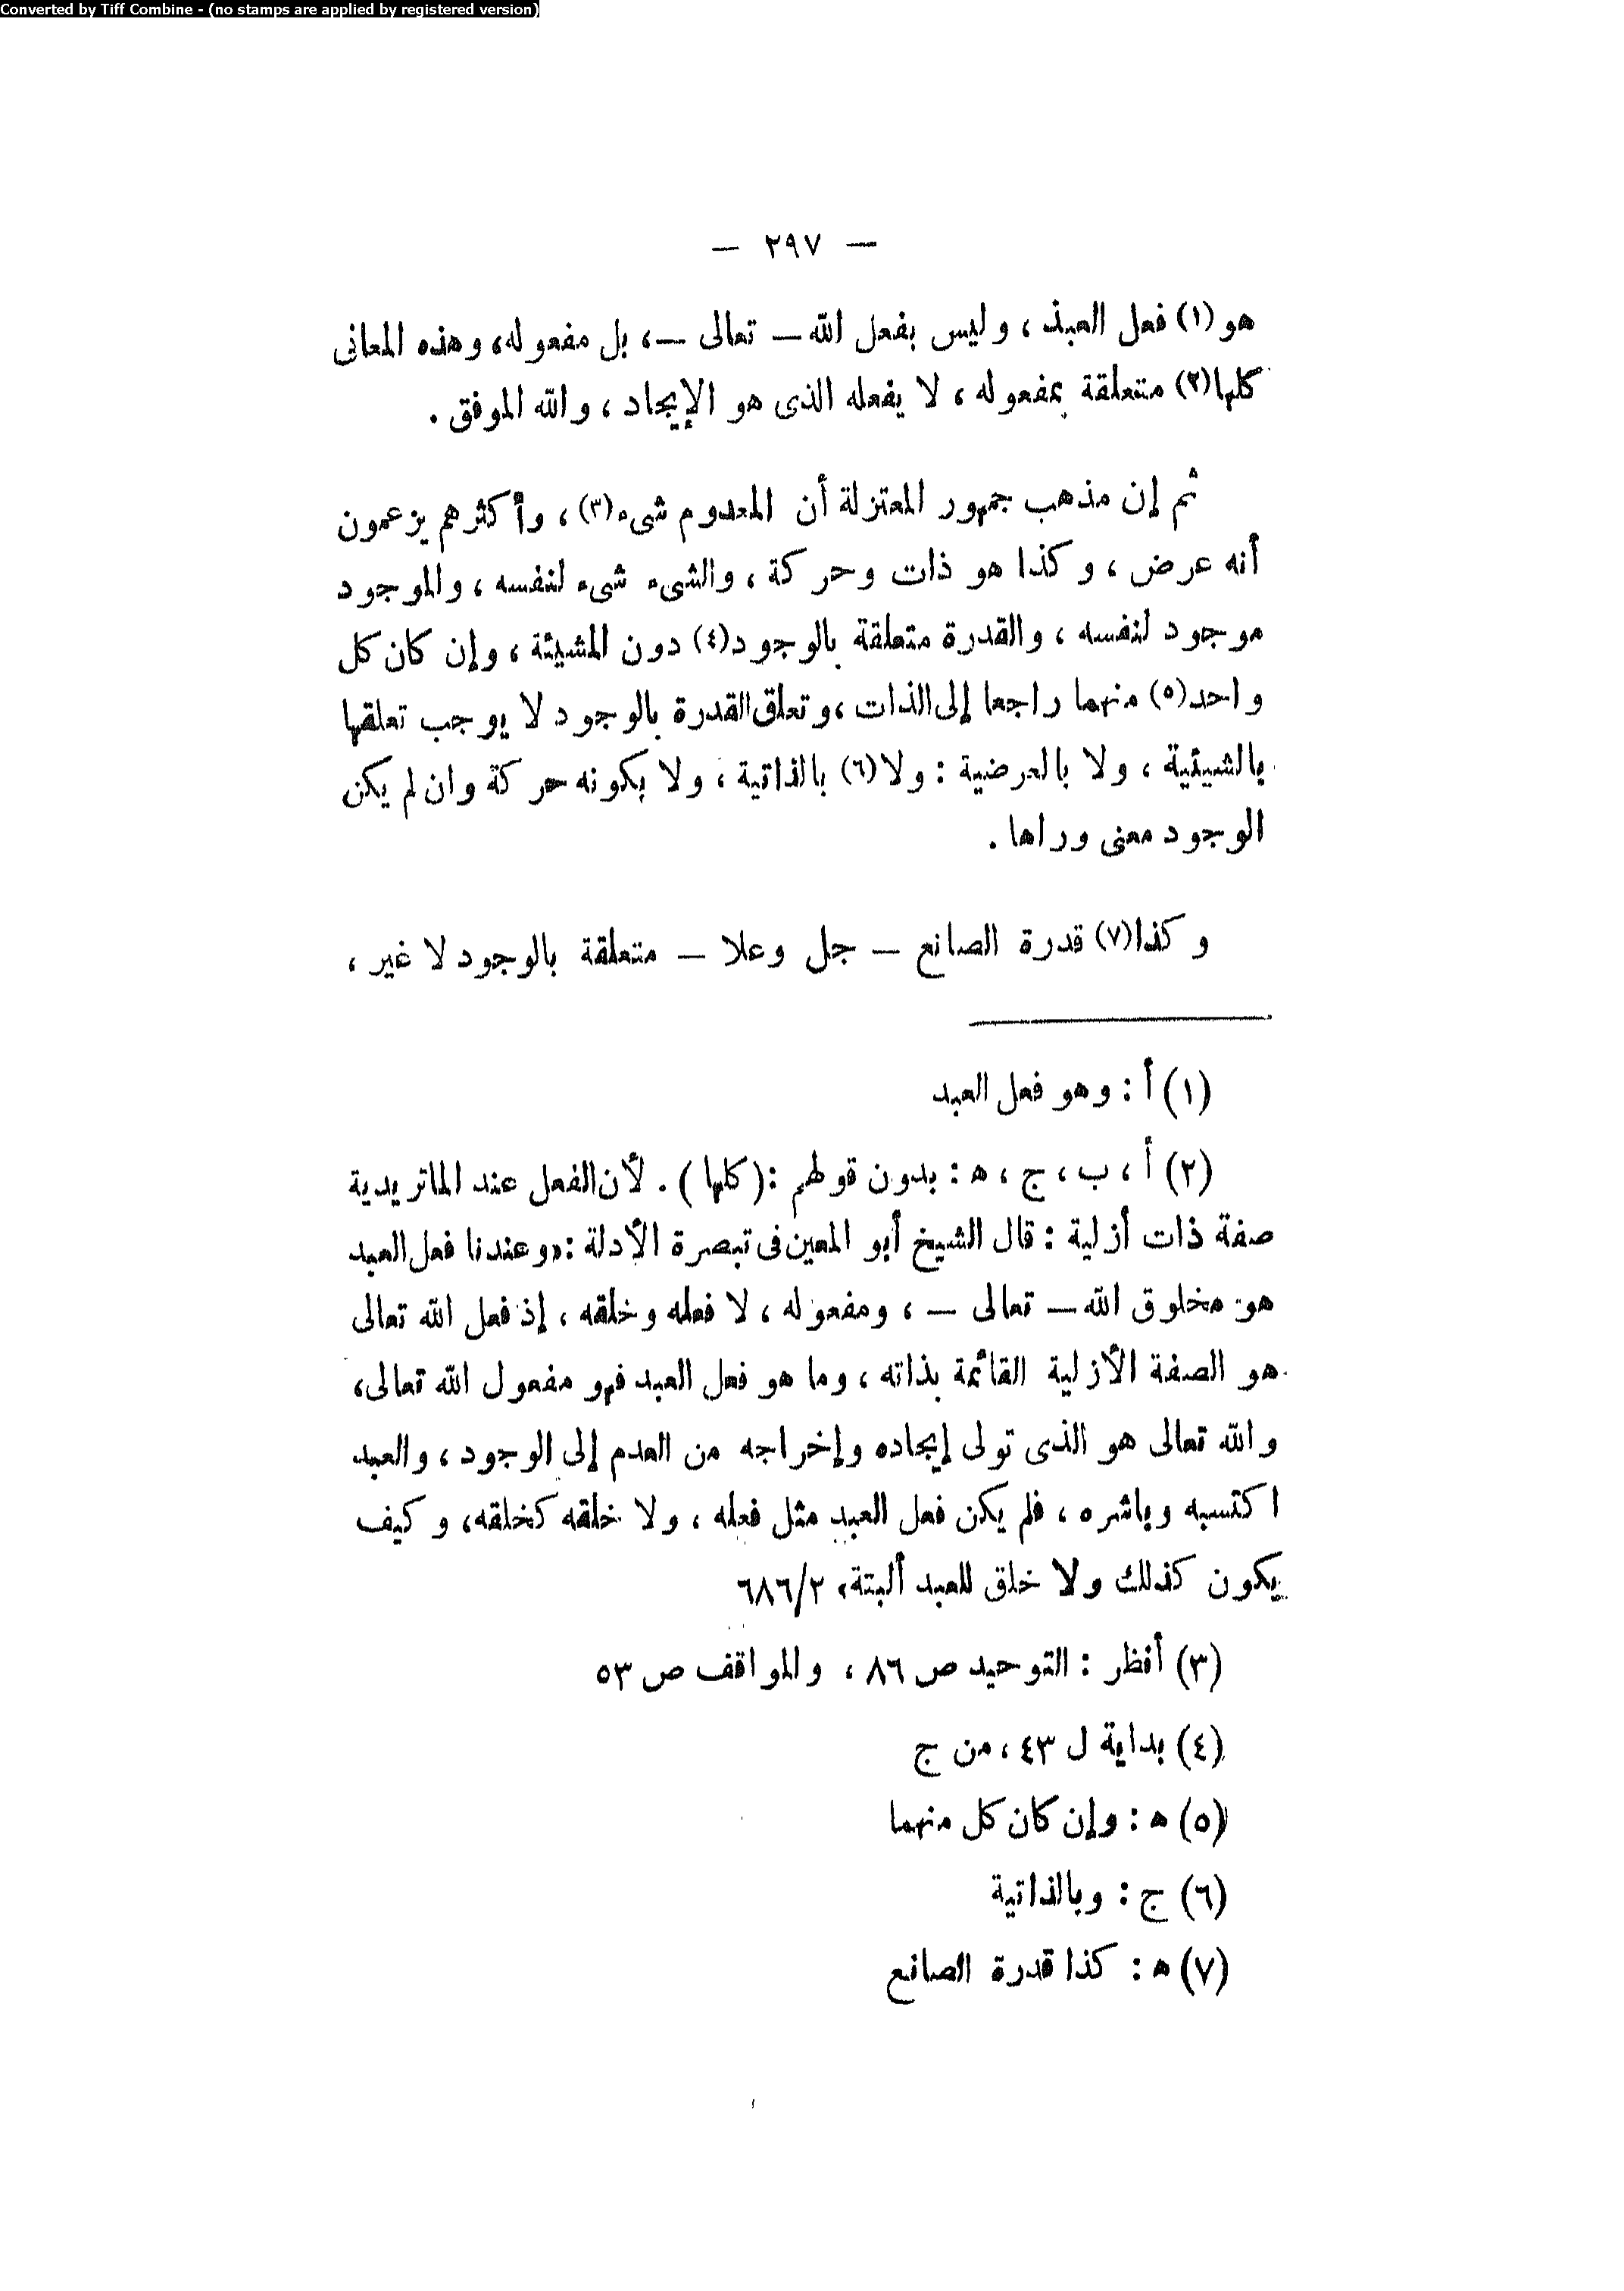 Converted by Tiff Combine - (no stamps are applied by registered version)
— ٢٩٧ —
هو (١) فعل العبد ، وليس بفعل الله — تعالى —، بل مفعوله، وهذه المعانى
كلها(٢) متعلقة بمفعوله ، لا يفعله الذى هو الإيجاد ، والله الموفق .
ثم إن مذهب جمهور المعتزلة أن المعدوم شىء(٣) ، وأكثرهم يزعمون
أنه عرض ، وكذا هو ذات وحركة ، والشىء شىء لنفسه ، والموجود
موجود لنفسه ، والقدرة متعلقة بالوجود(٤) دون المشيئة ، وإن كان كل
واحد(٥) منهما راجعا إلى الذات ، وتعلق القدرة بالوجود لا يوجب تعلقها
بالشيئية ، ولا بالعرضية : ولا(٦) بالذاتية ، ولا بكونه حركة وان لم يكن
الوجود معنى وراها .
وكذا(٧) قدرة الصانع — جل وعلا — متعلقة بالوجود لا غير ،
(١) أ : وهو فعل العبد
(٢) أ ، ب ، ج ، ه : بدون قولهم : (كلها) . لأن الفعل عند الماتريدية
صفة ذات أزلية : قال الشيخ أبو المعين فى تبصرة الأدلة : «وعندنا فعل العبد
هو مخلوق الله — تعالى — ، ومفعوله ، لا فعله وخلقه ، إذ فعل الله تعالى
هو الصفة الأزلية القائمة بذاته ، وما هو فعل العبد فهو مفعول الله تعالى،
والله تعالى هو الذى تولى إيجاده وإخراجه من العدم إلى الوجود ، والعبد
اكتسبه وباشره ، فلم يكن فعل العبد مثل فعله ، ولا خلقه كخلقه، وكيف
يكون كذلك ولا خلق للعبد ألبتة، ٦٨٦/٢
(٣) أنظر : التوحيد ص ٨٦ ، والمواقف ص ٥٣
(٤) بداية ل ٤٣ ، من ج
(٥) ه : وإن كان كل منهما
(٦) ج : وبالذاتية
(٧) ه : كذا قدرة الصانع